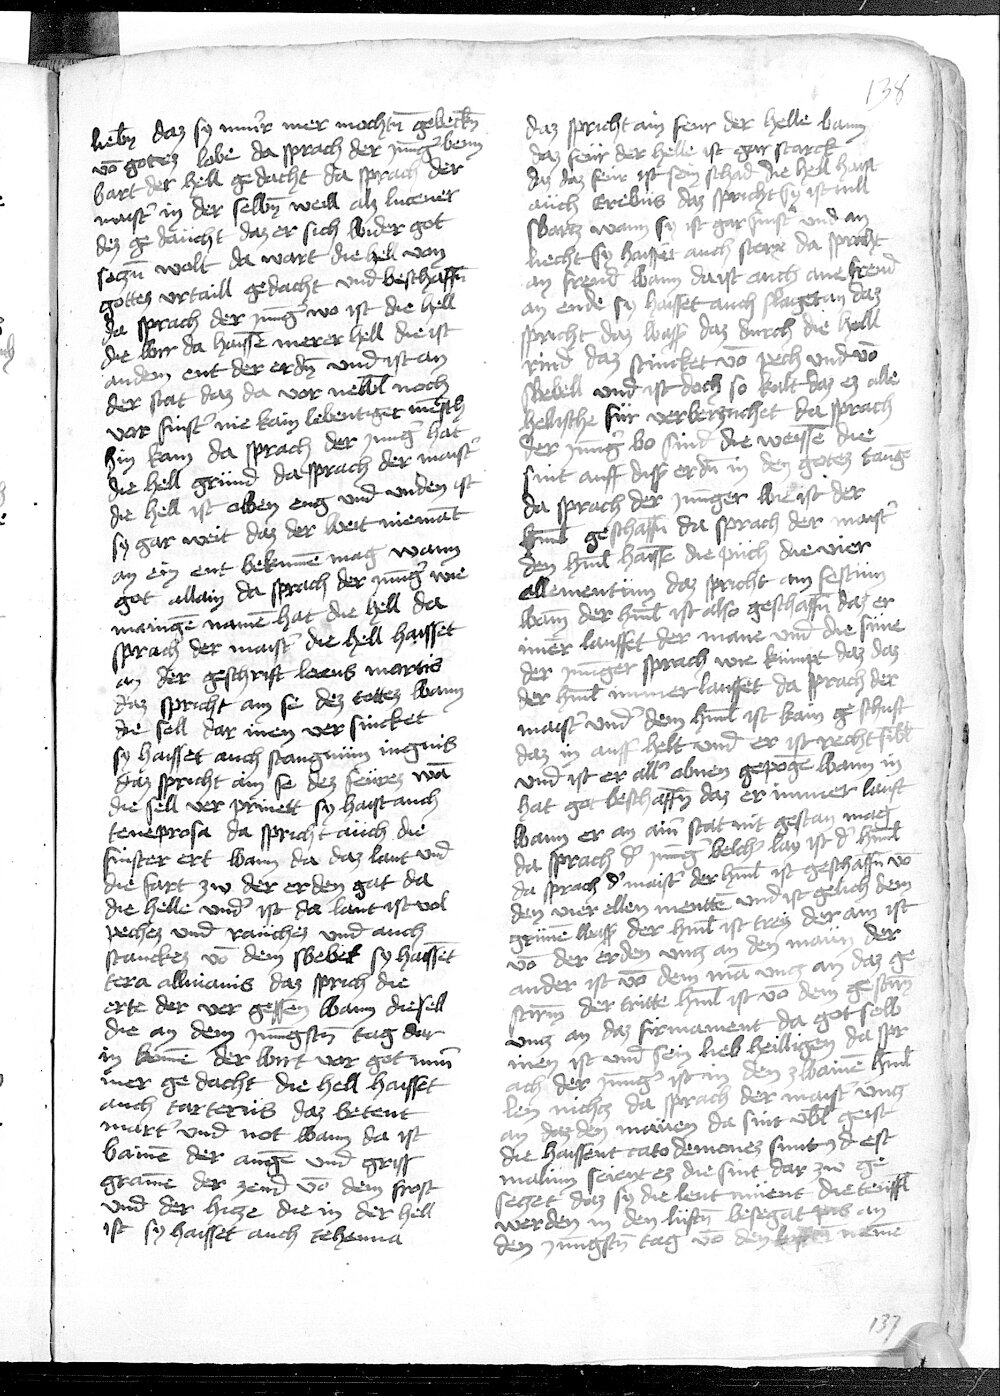 138
liebñ daz sy nim̄er mer mochtn̄ gedenckñ
vō gotez lobe da sprach der jung̾ wenn
wart der hell gedacht da sprach der
maist̾ in der selbñ weill alz lucener
dez gedaücht daz er sich wider got
seczn̄ wolt da wart die hell von
gottez vrtaill gedacht und beschaffn̄
da sprach der jung̾ wo ist die hell
die wir da haissē merer hell die ist
an dem ent der erdñ und ist an
der stat daz da vor nebel noch
vor finst̾ nie kain lebentiger mēsch
hin kam da sprach der jung̾ hat
die hell gründ da sprach der maist̾
die hell ist oben eng und unden ist
sy gar weit daz der weit niemāt
an ein ent bekumē mag wann
got allain da sprach der jung̾ wie
mainge namē hat die hell da
sprach der maist̾ die hell haisset
an der geschrift locus mortis
daz spricht ain se dez todez wann
die sell dar inen versincket
sy haisset auch stangnüm ingnis
daz spricht ain se dez feürez wā
die sell verprinett sy haist auch
teneprosa da spricht auch die
finster ert wann da daz laut und
die fart zw der erden gat da
die helle und̾ ist da laut ist vol
pechez und rauchez und auch
stanckez vō dem swebel sy haissēt
tera alliuianis daz sprich die
erte der vergessen wann die sell
die an dem jungstn̄ tag dar
in komē der wirt vor got nim̄
mer gedacht die hell haisset
auch tarternis daz betent
mart̾ und not wann da ist
wainē der augē und griss
gramē der zend vō dem frost
und der hicze die in der hell
ist sy haisset auch iehenna
daz spricht ain feur der helle wann
daz feür der helle ist gar starck
daz daz feur ist sein schad die hell haist
auch Erebus daz spricht sy ist vill
swarcz wann sy ist gar finst̾ und an
liecht sy haisset auch storx da spricht
an freud wann da ist auch ane freud
an ende sy haisset auch flagetan daz
spricht daz wass̾ daz durch die hell
rind daz stincket vō pech und vō
swebell und ist doch so kalt daz ez alle
helische für verberuchet da sprach
der jung̾ wo sind die weissē die
sint auff dis̾ erdn̄ in den gotez taugē
da sprach der junger wie ist der
himl geschaffn̄ da sprach der maist̾
den himl haissē die püch die vier
allementüm daz spricht ain festüm
wann der himl ist also geschaffn̄ daz er
imer lauffet der mane und die süne
der junger sprach wie kumpt daz daz
der himl immer lauffet da sprach der
maist̾ und̾ dem himl ist kain geschüft
daz in auff helt und er ist recht sibl
und ist er all̾ obnen gepogē wann in
hat got beschaffn̄ daz er immer lauft
wann er an ain̄ stat nit gestan mag
da sprach d̾ jung̾ welch̾ lay ist d̾ himl
da sprach d̾ maist̾ der himl ist geschaffn̄ vō
den vier ellen mentten und ist gelich dem
grünē wass̾ der himl ist trey der ain ist
vō der erden uncz an den maün der
ander ist vō dem ma uncz an daz ge
stirn̄ der tritte himl ist vō dem gestirn̄
uncz an daz firmament da got selb
inen ist und sein lieb heilligen da spr
ach der jung̾ ist in den zwainē himl
len nichcz da sprach der maist̾ uncz
an daz den mauen da sint übl geist
die haissent cato demonez sunt id est
malüm scientez die sint dar zw ge
seczet daz sy die leut müent die teuffl
werden in den lüftn̄ besegat pis an
den jungstn̄ tag vō den lüftn̄ nemē
137